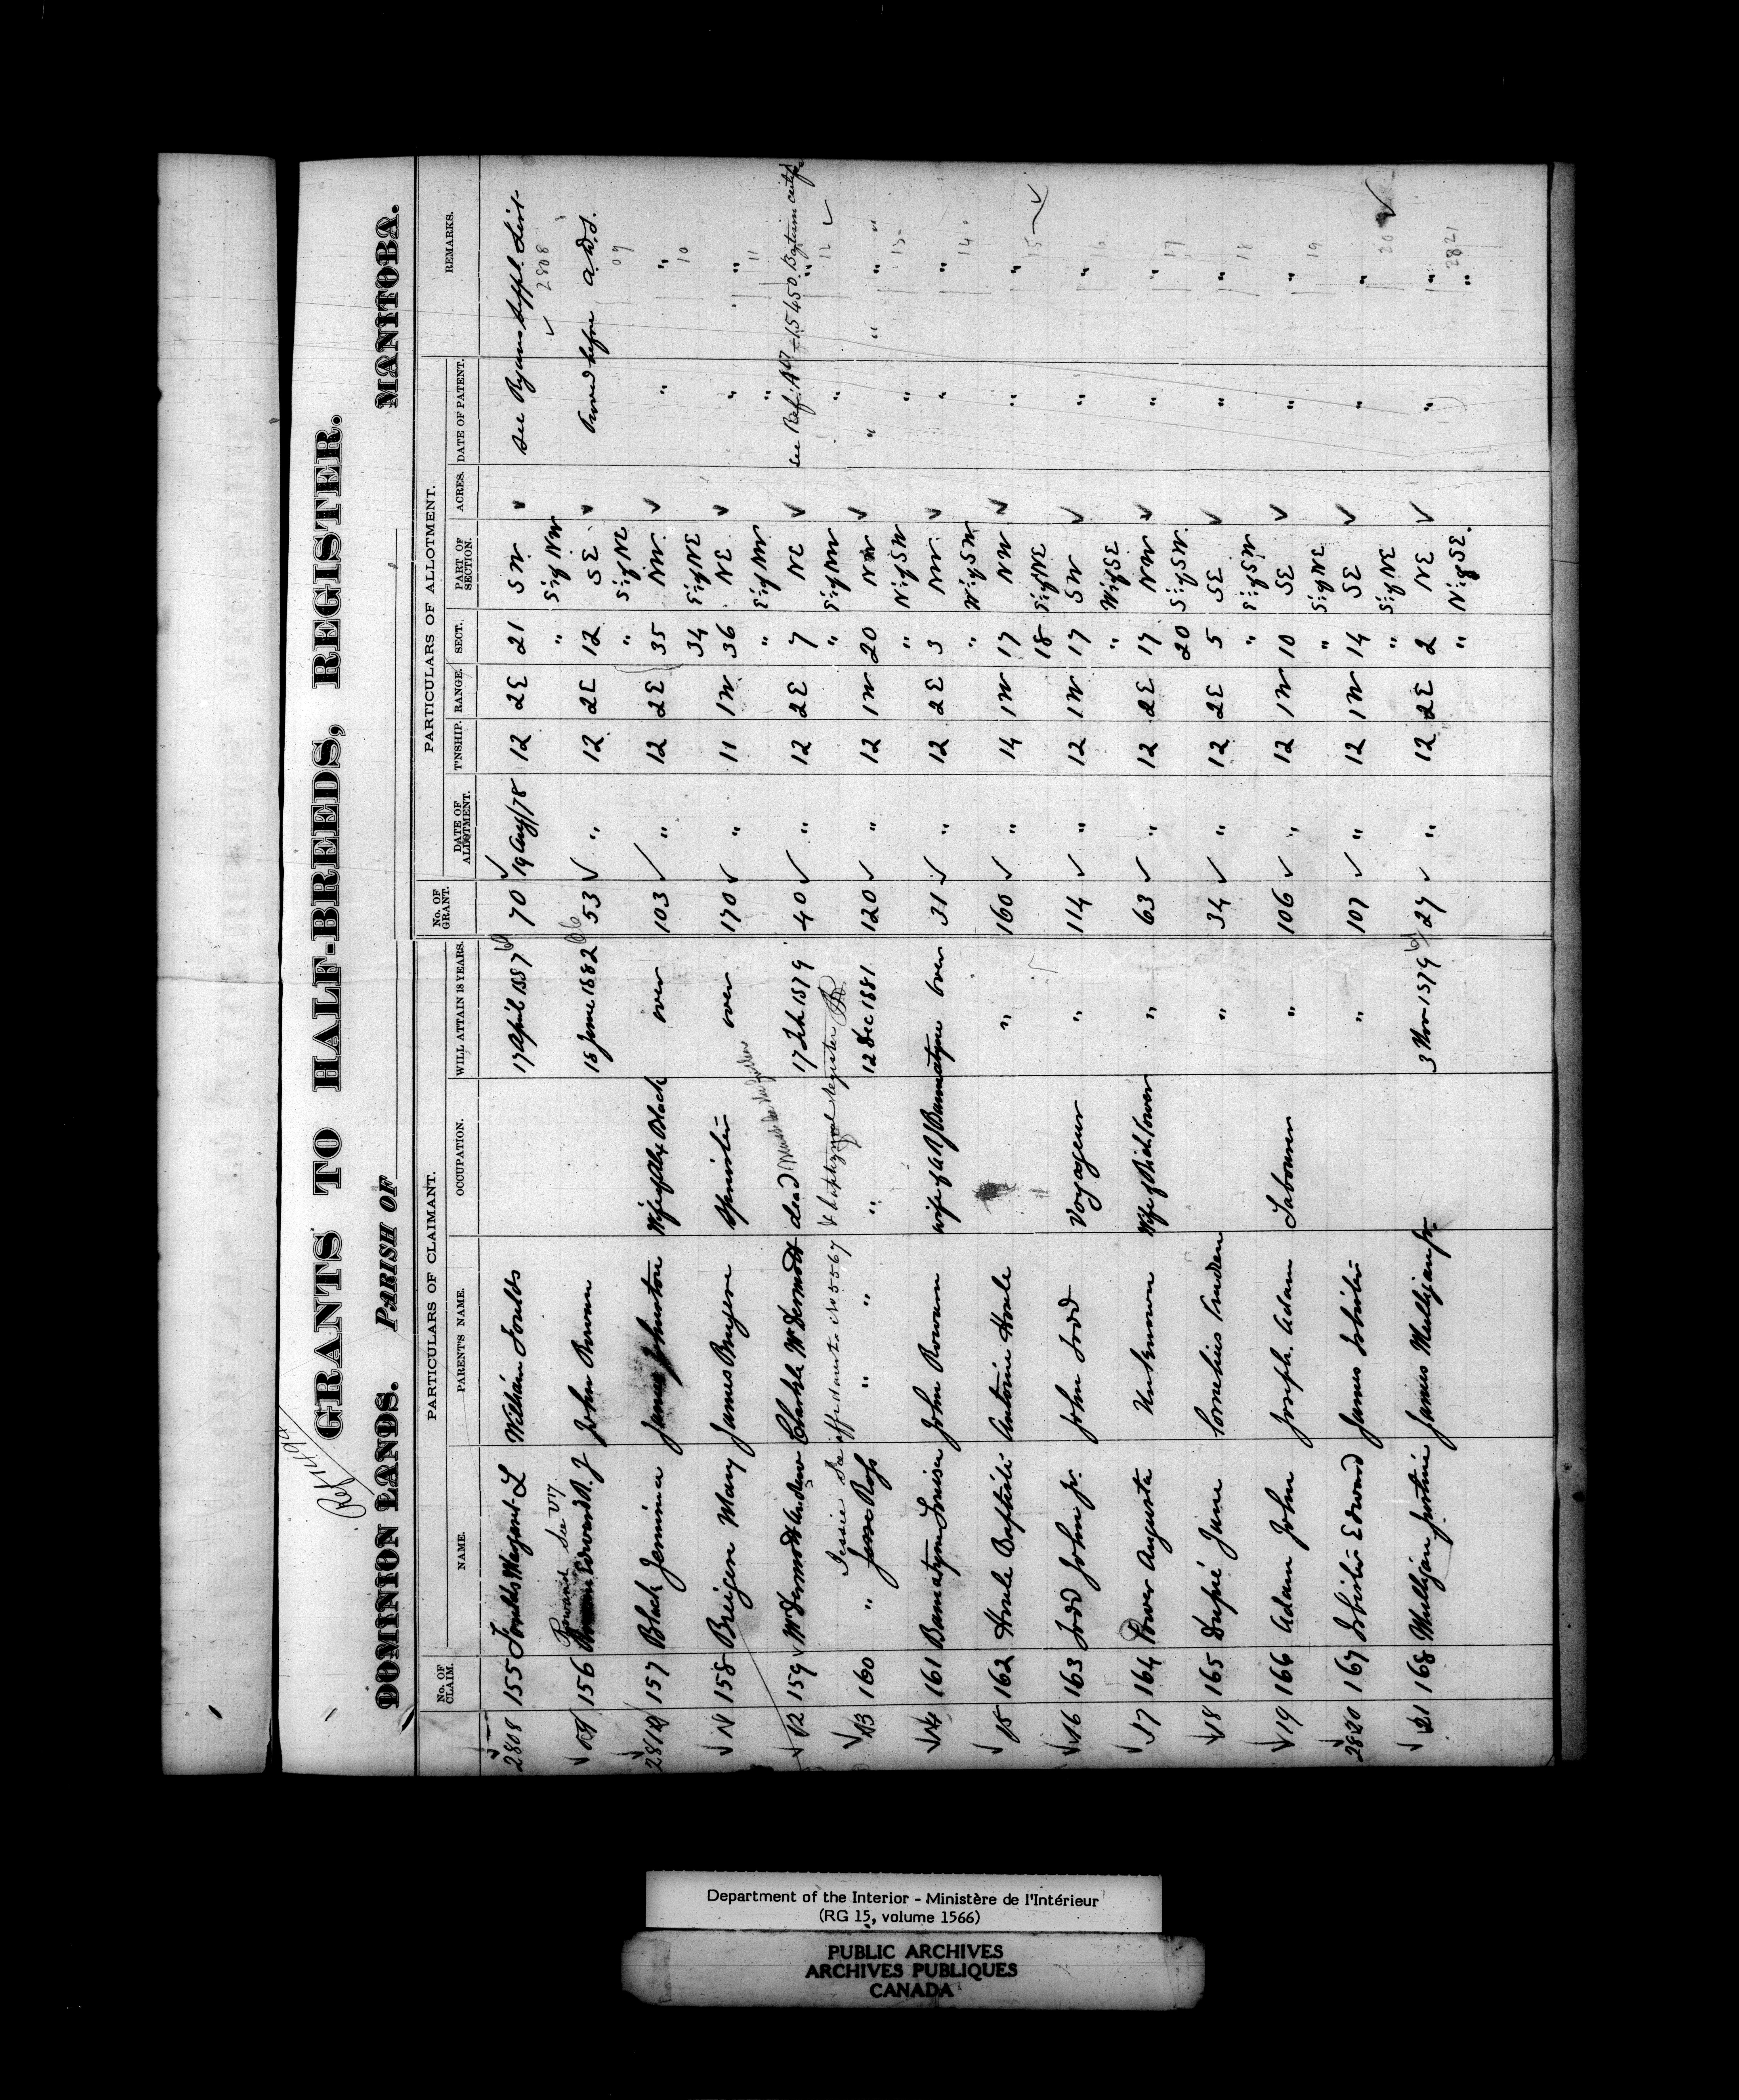 Ref 1494
GRANTS TO HALF-BREEDS, REGISTER.
DOMINION LANDS. PARISH OF MANITOBA.
PARTICULARS OF CLAIMANT. PARTICULARS OF ALLOTMENT.
No. OF CLAIM. NAME. PARENT'S NAME. OCCUPATION. WILL ATTAIN 18 YEARS. No. OF GRANT. DATE OF ALLOTMENT. T'NSHIP. RANGE. SECT. PART OF SECTION. ACRES. DATE OF PATENT. REMARKS.
2808 155 Foulds Margaret L William Foulds 17 April 187 70 ✓ 19 Aug/78 12 2E 21 SW ✓ See Ryans Suppl. List
" S½ of NW ✓ 2808
Rowand See V17
09 156 Edward R. J John Rowan 18 June 1882 53 ✓ " 12 2E 12 SE ✓ Proved before A.W.S.
" S½ of NE 09
2810 157 Black Jemima James Johnston Wife of Alex Black over 103 ✓ " 12 2E 35 NW ✓ " "
34 S½ of NE 10
11 158 Breigen Mary James Breyere Spinster over 170 ✓ " 11 1W 36 NE ✓ " "
" E½ of NW " 11
12 159 McDermott Andrew Charles McDermott dead 17 Feb 1879 40 ✓ " 12 2E 7 NE ✓ See Ref: 15450. Baptism certif
Jessie See affidavit in No 5567 & baptismal register " S½ of NW " 12 ✓
13 160 " Jesse Ross " " " 12 Dec 1881 120 ✓ " 12 1W 20 NW ✓ " " " "
" N½ of SW " 13
14 161 Bannatyne Louisa John Rowan wife of A G J Bannatyne over 31 ✓ " 12 2E 3 NW ✓ " "
" W½ of SW 14
15 162 Houle Baptiste Antoine Houle " 160 ✓ " 14 1W 17 NW ✓ " "
18 S½ of NE 15 ✓
16 163 Todd John Jr. John Todd Voyageur " 114 ✓ " 12 1W 17 SW ✓ " "
" W½ of SE 16
17 164 Power Augusta Unknown Wife of Rich. Power " 63 ✓ " 12 2E 17 NW ✓ " "
20 S½ of SW 17
18 165 Dupré Jane Cornelius Pruden " 34 ✓ " 12 2E 5 SE ✓ " "
" E½ of SW 18
19 166 Adam John Joseph Adam Labourer " 106 ✓ " 12 1W 10 SE ✓ " "
" S½ of NE 19
2820 167 Inkster Edward James Inkster " 107 ✓ " 12 1W 14 SE ✓ " "
" S½ of NE 20 ✓
21 168 Mulligan Justine James Mulligan Jr. 3 Nov 1879 27 ✓ " 12 2E 2 NE ✓ " "
" N½ of SE. " 2821
Department of the Interior - Ministère de l'Intérieur
(RG 15, volume 1566)
PUBLIC ARCHIVES
ARCHIVES PUBLIQUES
CANADA